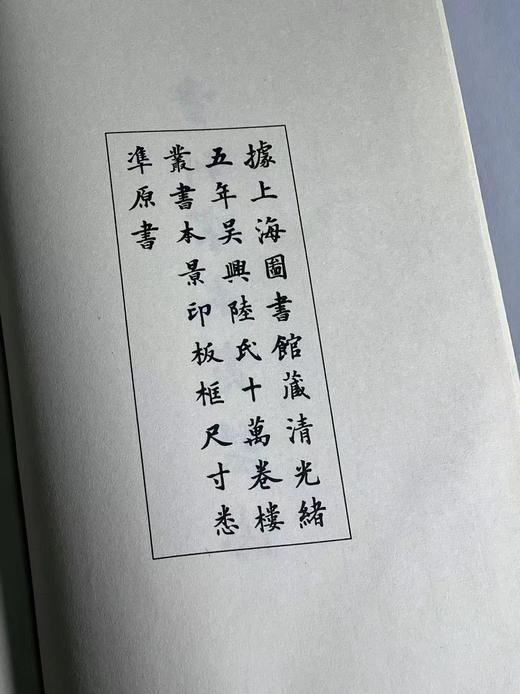 據上海圖書館藏清光緒
五年吳興陸氏十萬卷樓
叢書本景印板框尺寸悉
準原書